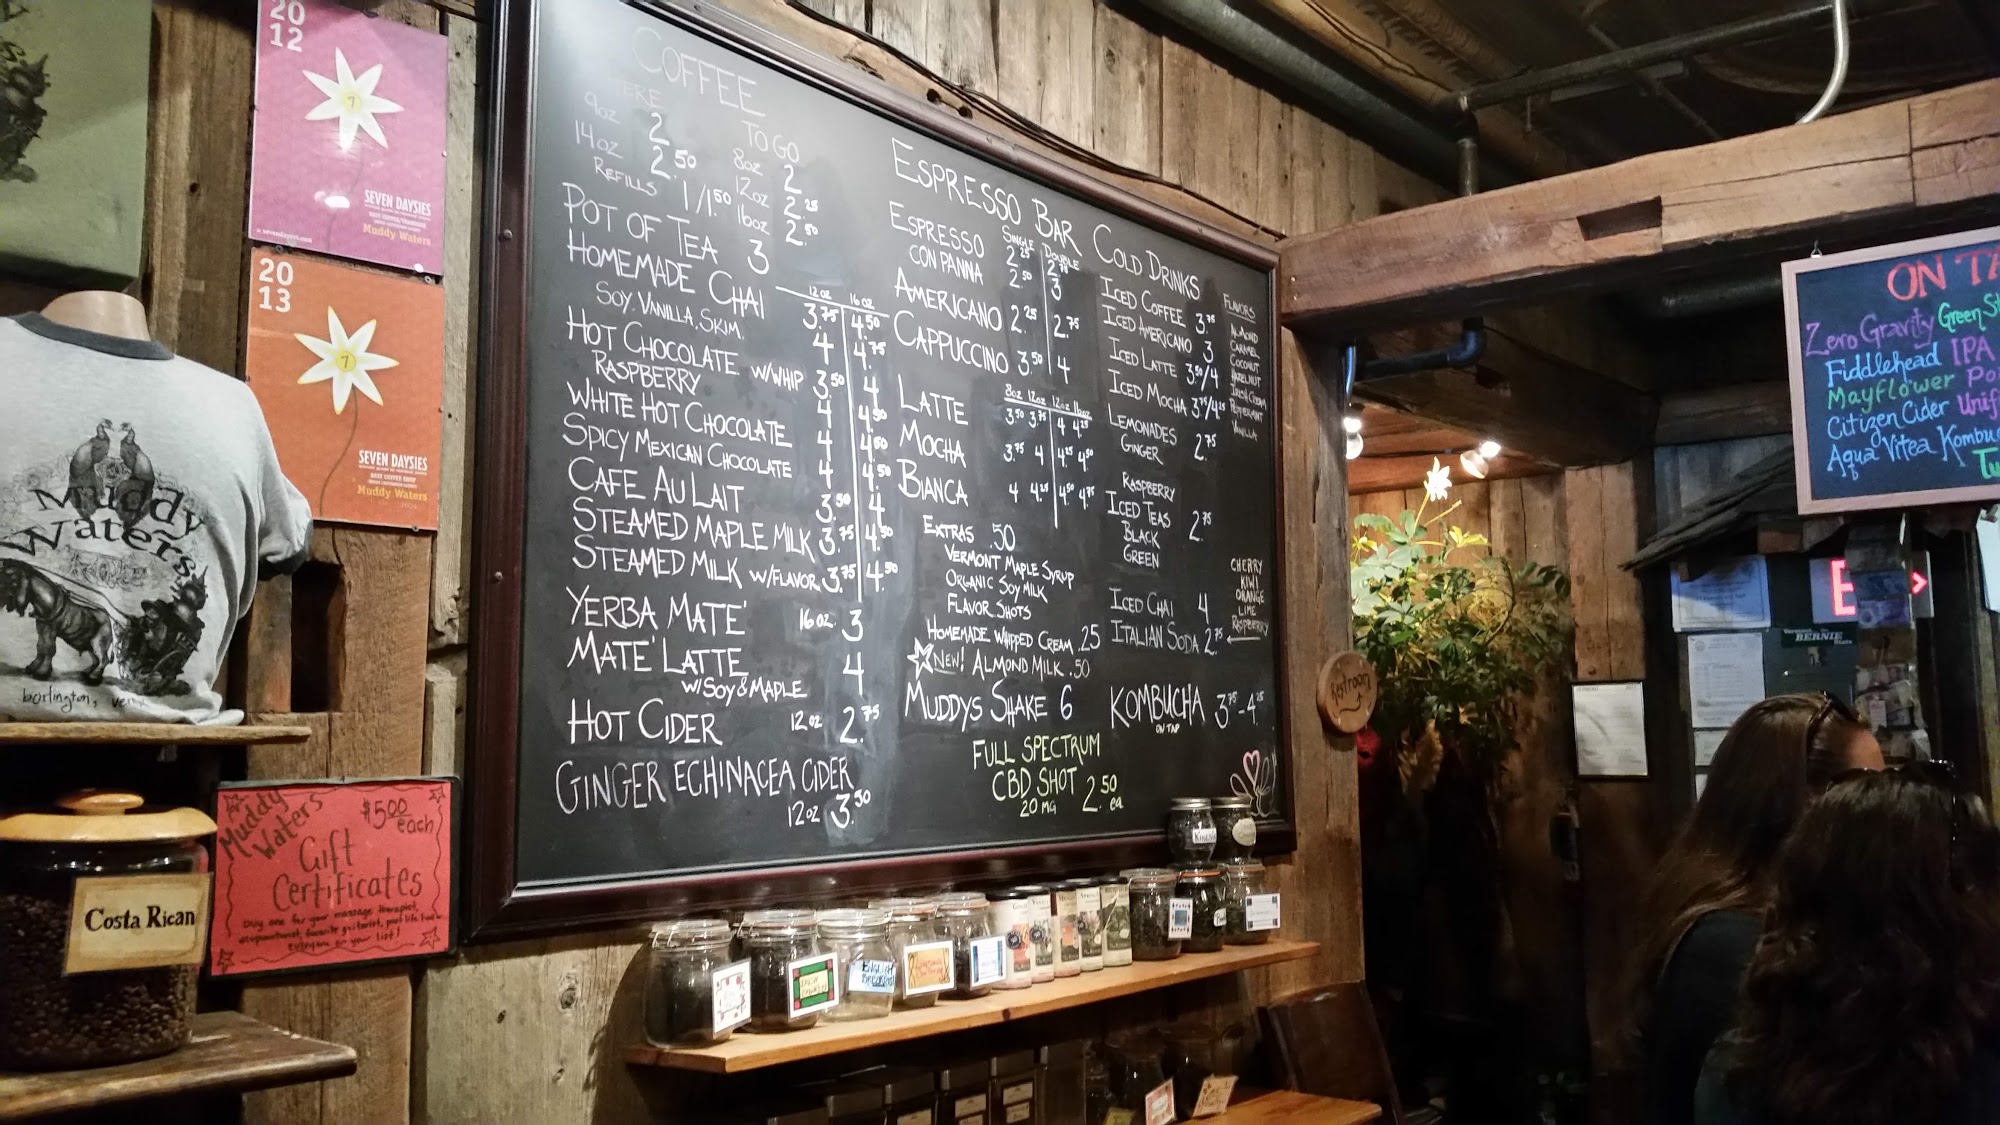 20
12
SEVEN DAYSIES
Muddy Waters
20
13
SEVEN DAYSIES
Muddy Waters
Muddy
Waters
burlington, verm
Costa Rican
Muddy
Waters
$5.00
each
Gift
Certificates
Buy one for your massage therapist,
acupuncturist, favorite guitarist, past life
everyone on your list!
COFFEE
HERE
9oz 2
14oz 2.50
REFILLS 1/1.50
TO GO
8oz 2
12oz 2.25
16oz 2.50
POT OF TEA 3
12oz 16oz
HOMEMADE CHAI 3.75 4.50
SOY, VANILLA, SKIM 4 4.75
HOT CHOCOLATE W/WHIP 3.50 4
RASPBERRY 4 4.50
WHITE HOT CHOCOLATE 4 4.50
SPICY MEXICAN CHOCOLATE 4 4.50
CAFE AU LAIT 3.50 4
STEAMED MAPLE MILK 3.75 4.50
STEAMED MILK W/FLAVOR 3.75 4.50
YERBA MATE' 16oz. 3
MATE' LATTE 4
W/SOY & MAPLE
HOT CIDER 12oz 2.75
GINGER ECHINACEA CIDER
12oz 3.50
ESPRESSO BAR
SINGLE DOUBLE
ESPRESSO 2.25 2.75
CON PANNA 2.50 3
AMERICANO 2.25 2.75
CAPPUCCINO 3.50 4
8oz 12oz 12oz 16oz
LATTE 3.50 3.75 4 4.25
MOCHA 3.75 4 4.25 4.50
BIANCA 4 4.25 4.50 4.75
EXTRAS .50
VERMONT MAPLE SYRUP
ORGANIC SOY MILK
FLAVOR SHOTS
HOMEMADE WHIPPED CREAM .25
NEW! ALMOND MILK .50
MUDDYS SHAKE 6
FULL SPECTRUM
CBD SHOT
20 MG 2.50 ea
COLD DRINKS
ICED COFFEE 3.75
ICED AMERICANO 3
ICED LATTE 3.50/4
ICED MOCHA 3.75/4.25
LEMONADES 2.75
GINGER
RASPBERRY
ICED TEAS 2.75
BLACK
GREEN
ICED CHAI 4
ITALIAN SODA 2.75
KOMBUCHA 3.75-4.25
ON TAP
FLAVORS
ALMOND
CARAMEL
COCONUT
HAZELNUT
IRISH CREAM
PEPPERMINT
VANILLA
CHERRY
KIWI
ORANGE
LIME
RASPBERRY
Restroom
ON TA
Zero Gravity Green St
Fiddlehead IPA
Mayflower Po
Citizen Cider Unif
Aqua Vitea Kombuc
BERNIE